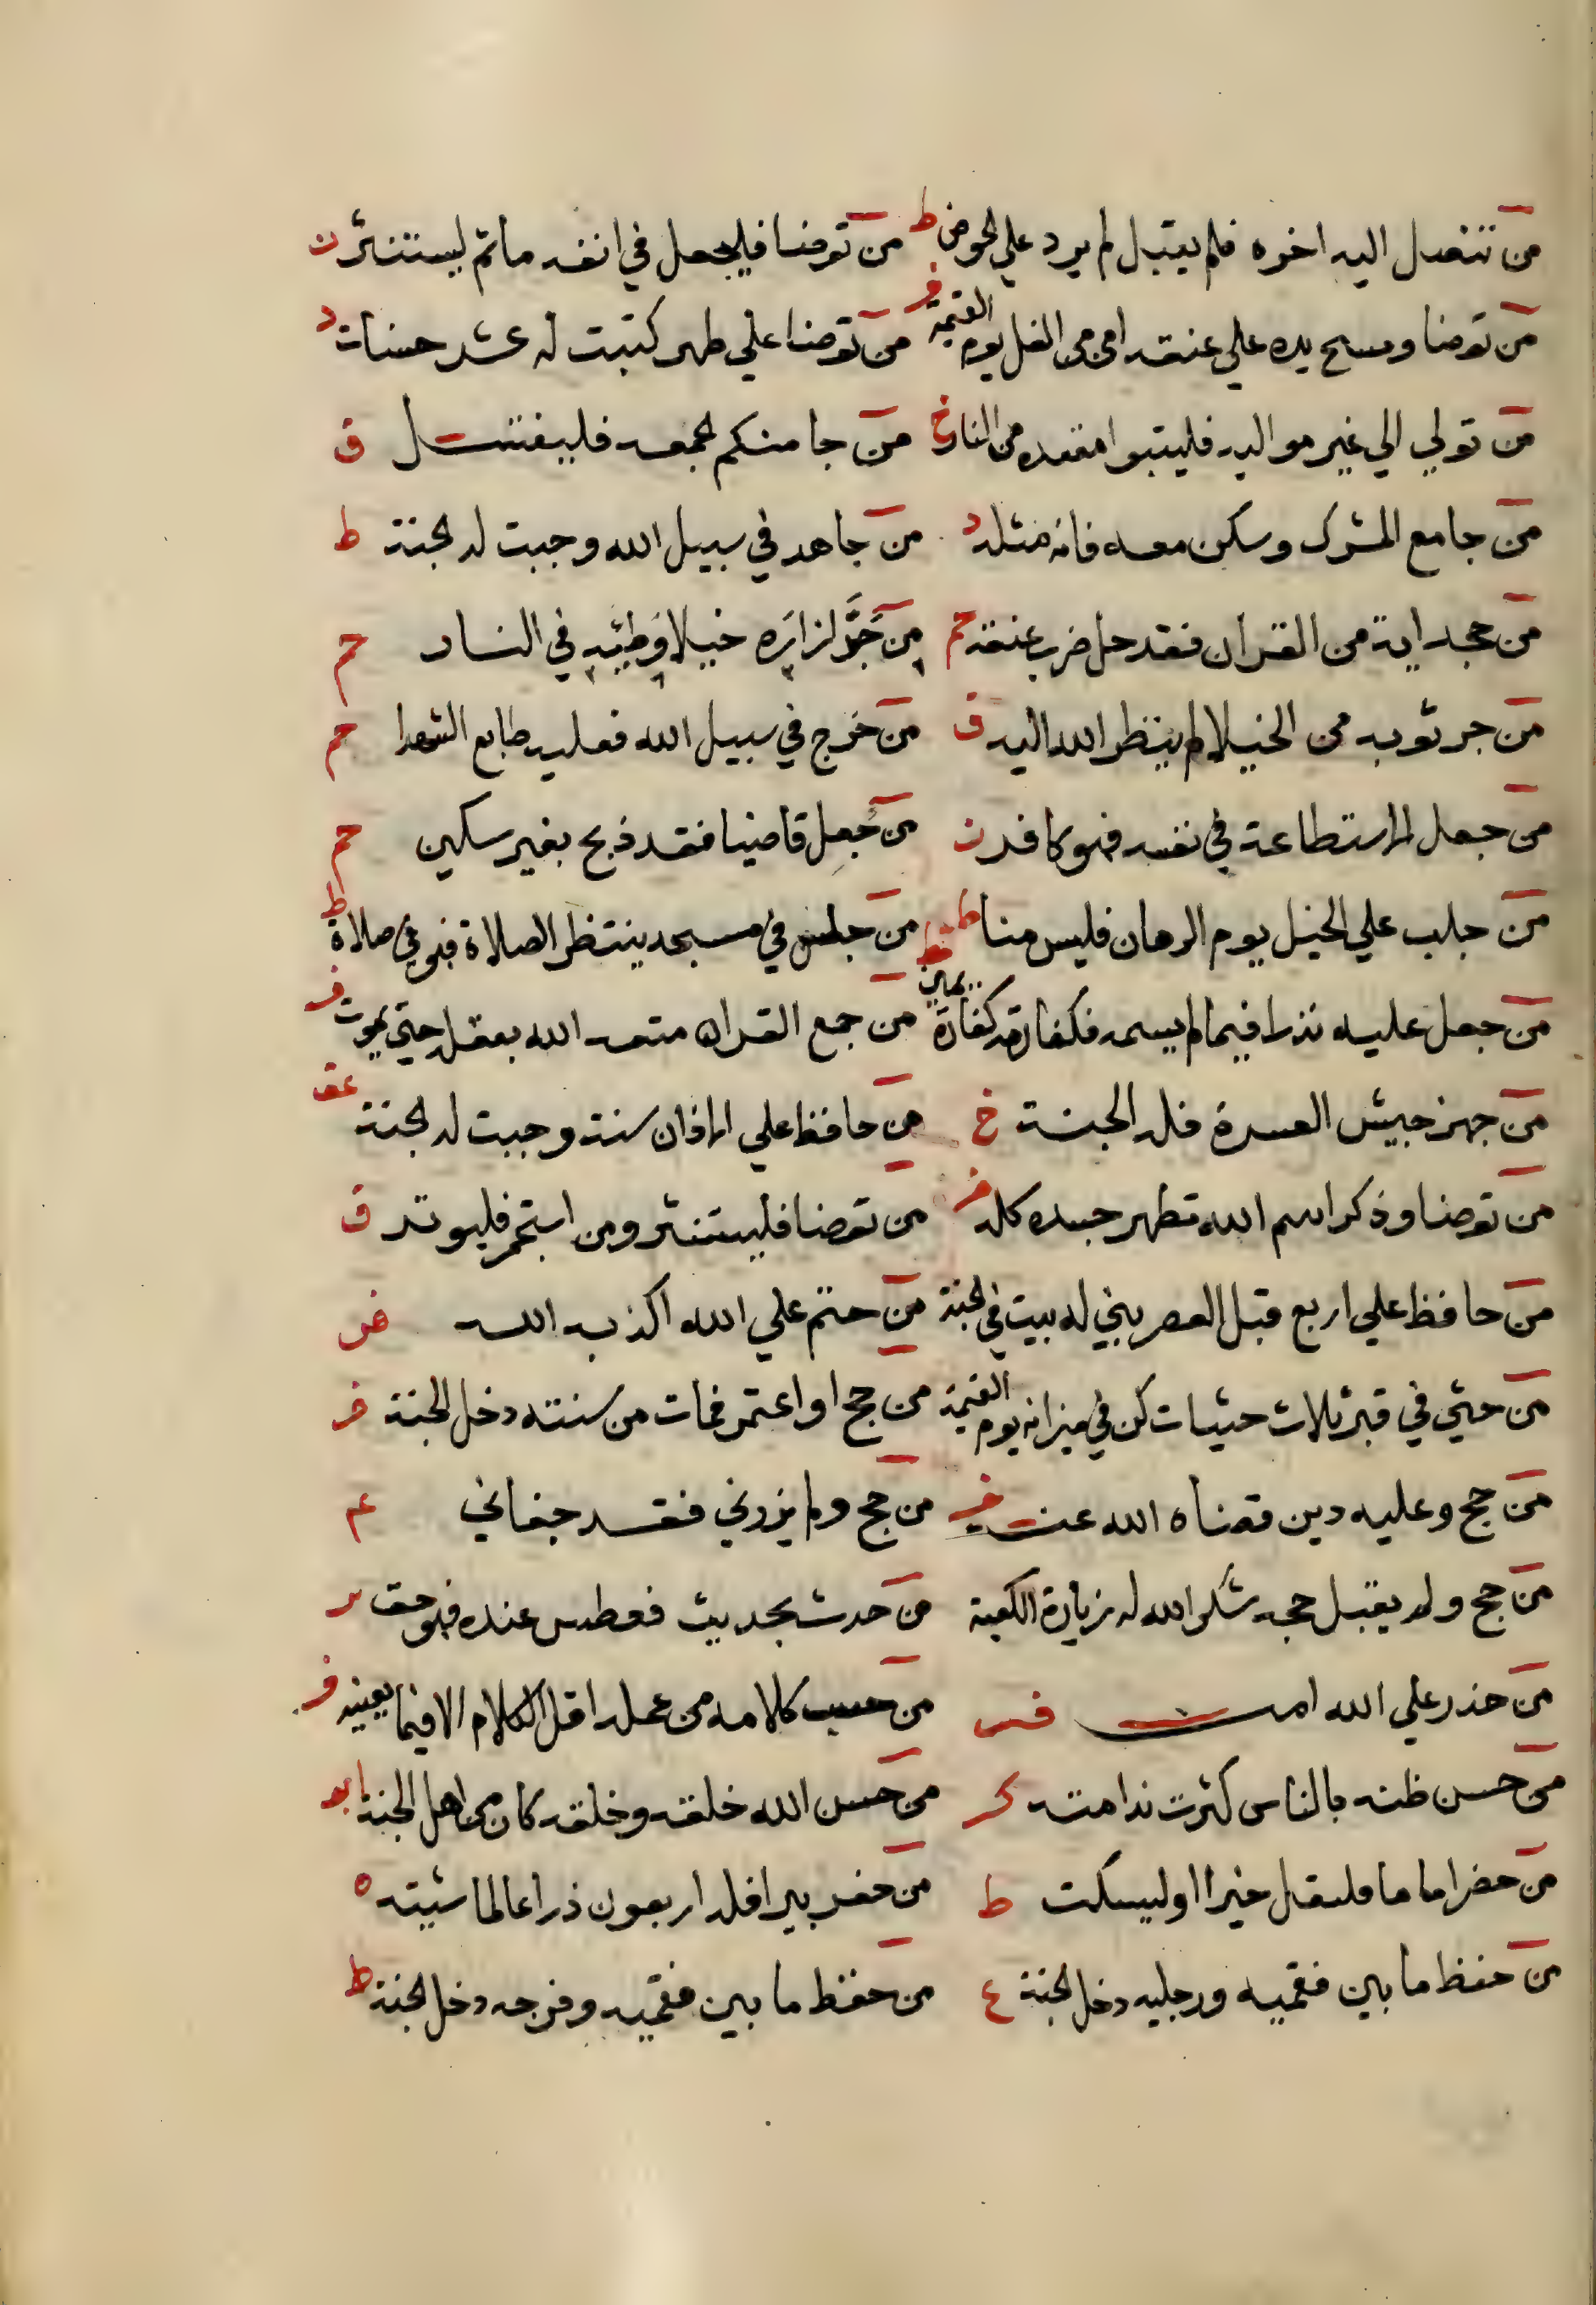 من تنصل اليه اخوه فلم يقبل لم يرد علي الحوض ط من توضا فليجعل في انفه ما ثم ليستنثر ن
من توضا ومسح يده علي عنقه امن من الغل يوم القيمة ف من توضا علي طهر كتبت له عشر حسنات د
من تولي الي غير مواليه فليتبوا مقعده من النار خ من جا منكم الجمعه فليغتسل ق
من جامع المشرك وسكن معه فانه مثله د من جاهد في سبيل الله وجبت له الجنة ط
من جحد اية من القران فقد حل ضرب عنقه حم من جَرَّ ازاره خيلا وَطِئَهِ في النار حم
من جر ثوبه من الخيلا لم ينظر الله اليه ق من خرج في سبيل الله فعليه طابع الشهدا حم
من جعل الاستطاعة في نفسه فهو كافر ن من جُعِل قاضيا فقد ذبح بغير سكين حم
من جلب علي الخيل يوم الرهان فليس منا ط من جلس في مسجد ينتظر الصلاة فهو في صلاة ط
من جعل عليه نذرا فيما لم يسمه فكفارته كفارة يمين قط من جمع القران متعه الله بعقله حتي يموت ف
من جهز جيش العسرة فله الجنة خ من حافظ علي الاذان سنة وجبت له الجنة عق
من توضا وذكر اسم الله تطهر جسده كله ف من توضا فليستنثر ومن استجمر فليوتر ق
من حافظ علي اربع قبل العصر بني له بيت في الجنة من حتم علي الله اكذبه الله فر
من حثي في قبر ثلاث حثيات كن في ميزانه يوم القيمة من حج او اعتمر فمات من سنته دخل الجنة ف
من حج وعليه دين قضاه الله عنه ف من حج ولم يزرني فقد جفاني عم
من حج ولم يقبل حجه شكر الله له زيارة الكعبة من حدث بحديث فعطس عنده فهو حق
من حذر علي الله امنه فر من حسب كلامه من عمله اقل الكلام الا فيما يعنيه ف
من حسن ظنه بالناس كثرت ندامته كر من حسن الله خلقه وخلقه كان من اهل الجنة ابو
من حضر اماما فليقل خيرا او ليسكت ط من حفر بيرا فله اربعون ذراعا لماشيته ه
من حفظ ما بين فقميه ورجليه دخل الجنة ع من حفظ ما بين فقميه وفرجه دخل الجنة ط